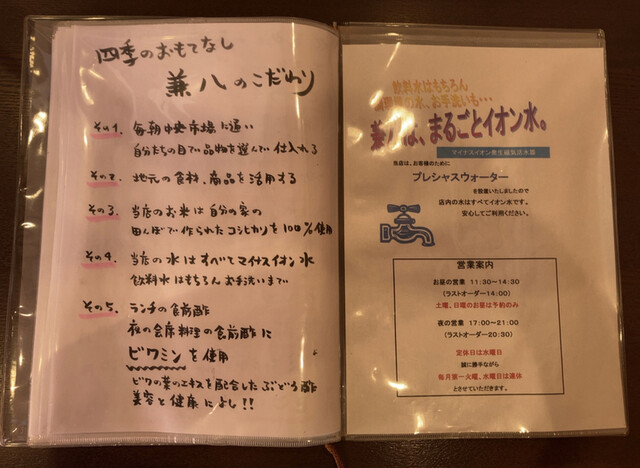 四季のおもてなし
兼八のこだわり
その1. 毎朝中央市場に通い
自分たちの目で品物を選んで仕入れる
その2. 地元の食材、商品を活用する
その3. 当店のお米は自分の家の
田んぼで作られたコシヒカリを100%使用
その4. 当店の水はすべてマイナスイオン水
飲料水はもちろんお手洗いまで
その5. ランチの食前酢
夜の会席料理の食前酢に
ビワミンを使用
ビワの葉のエキスを配合したぶどう酢
美容と健康によし!!
飲料水はもちろん
の水、お手洗いも・・・
兼八は、まるごとイオン水。
マイナスイオン発生磁気活水器
当店は、お客様のために
プレシャスウォーター
を設置いたしましたので
店内の水はすべてイオン水です。
安心してご利用ください。
営業案内
お昼の営業 11:30~14:30
(ラストオーダー14:00)
土曜、日曜のお昼は予約のみ
夜の営業 17:00~21:00
(ラストオーダー20:30)
定休日は水曜日
誠に勝手ながら
毎月第一火曜、水曜日は連休
とさせていただきます。